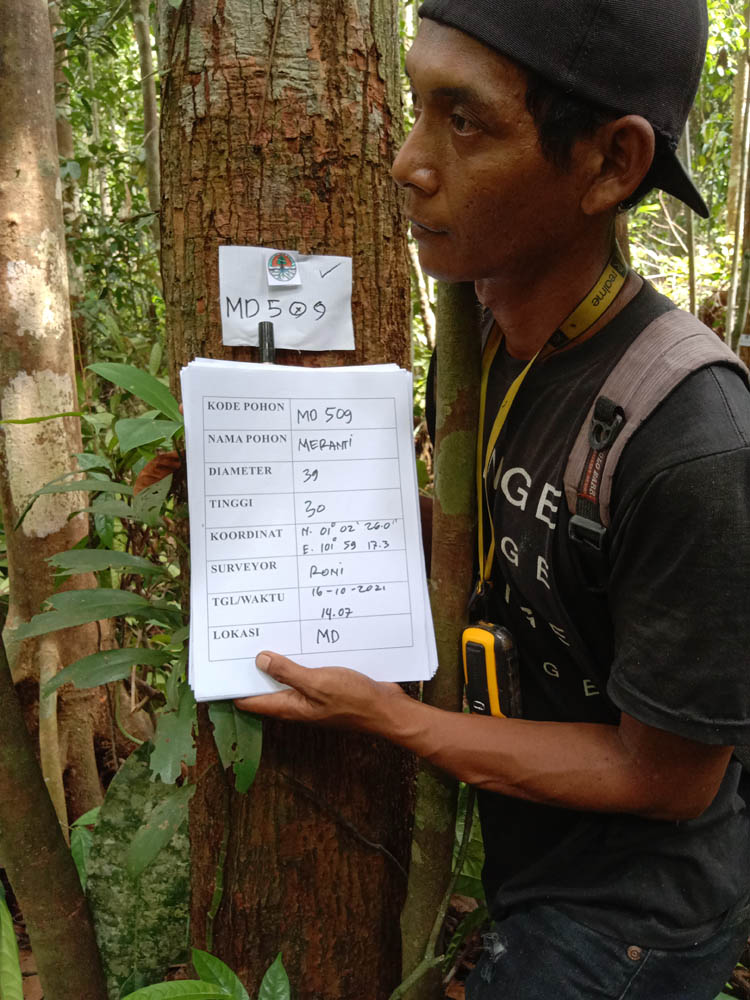 MD 509
KODE POHON MD 509
NAMA POHON MERANTI
DIAMETER 39
TINGGI 30
KOORDINAT N. 01° 02' 26.0"
E. 101° 59 17.3
SURVEYOR RONI
TGL/WAKTU 16-10-2021
14.07
LOKASI MD
realme
NGE
NGE
GE
GE
E